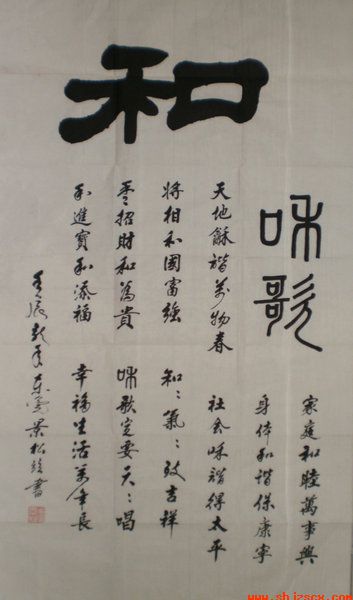 和
咊歌
家庭和睦萬事興
身体和谐保康寧
天地龢諧萬物春 社会咊諧得太平
将相和國富強 和:氣:致吉祥
招財和為貴 咊歌定要天:唱
和進寶和添福 幸福生活萬年長
壬辰龍年 景松 書
www.shjzscx.com